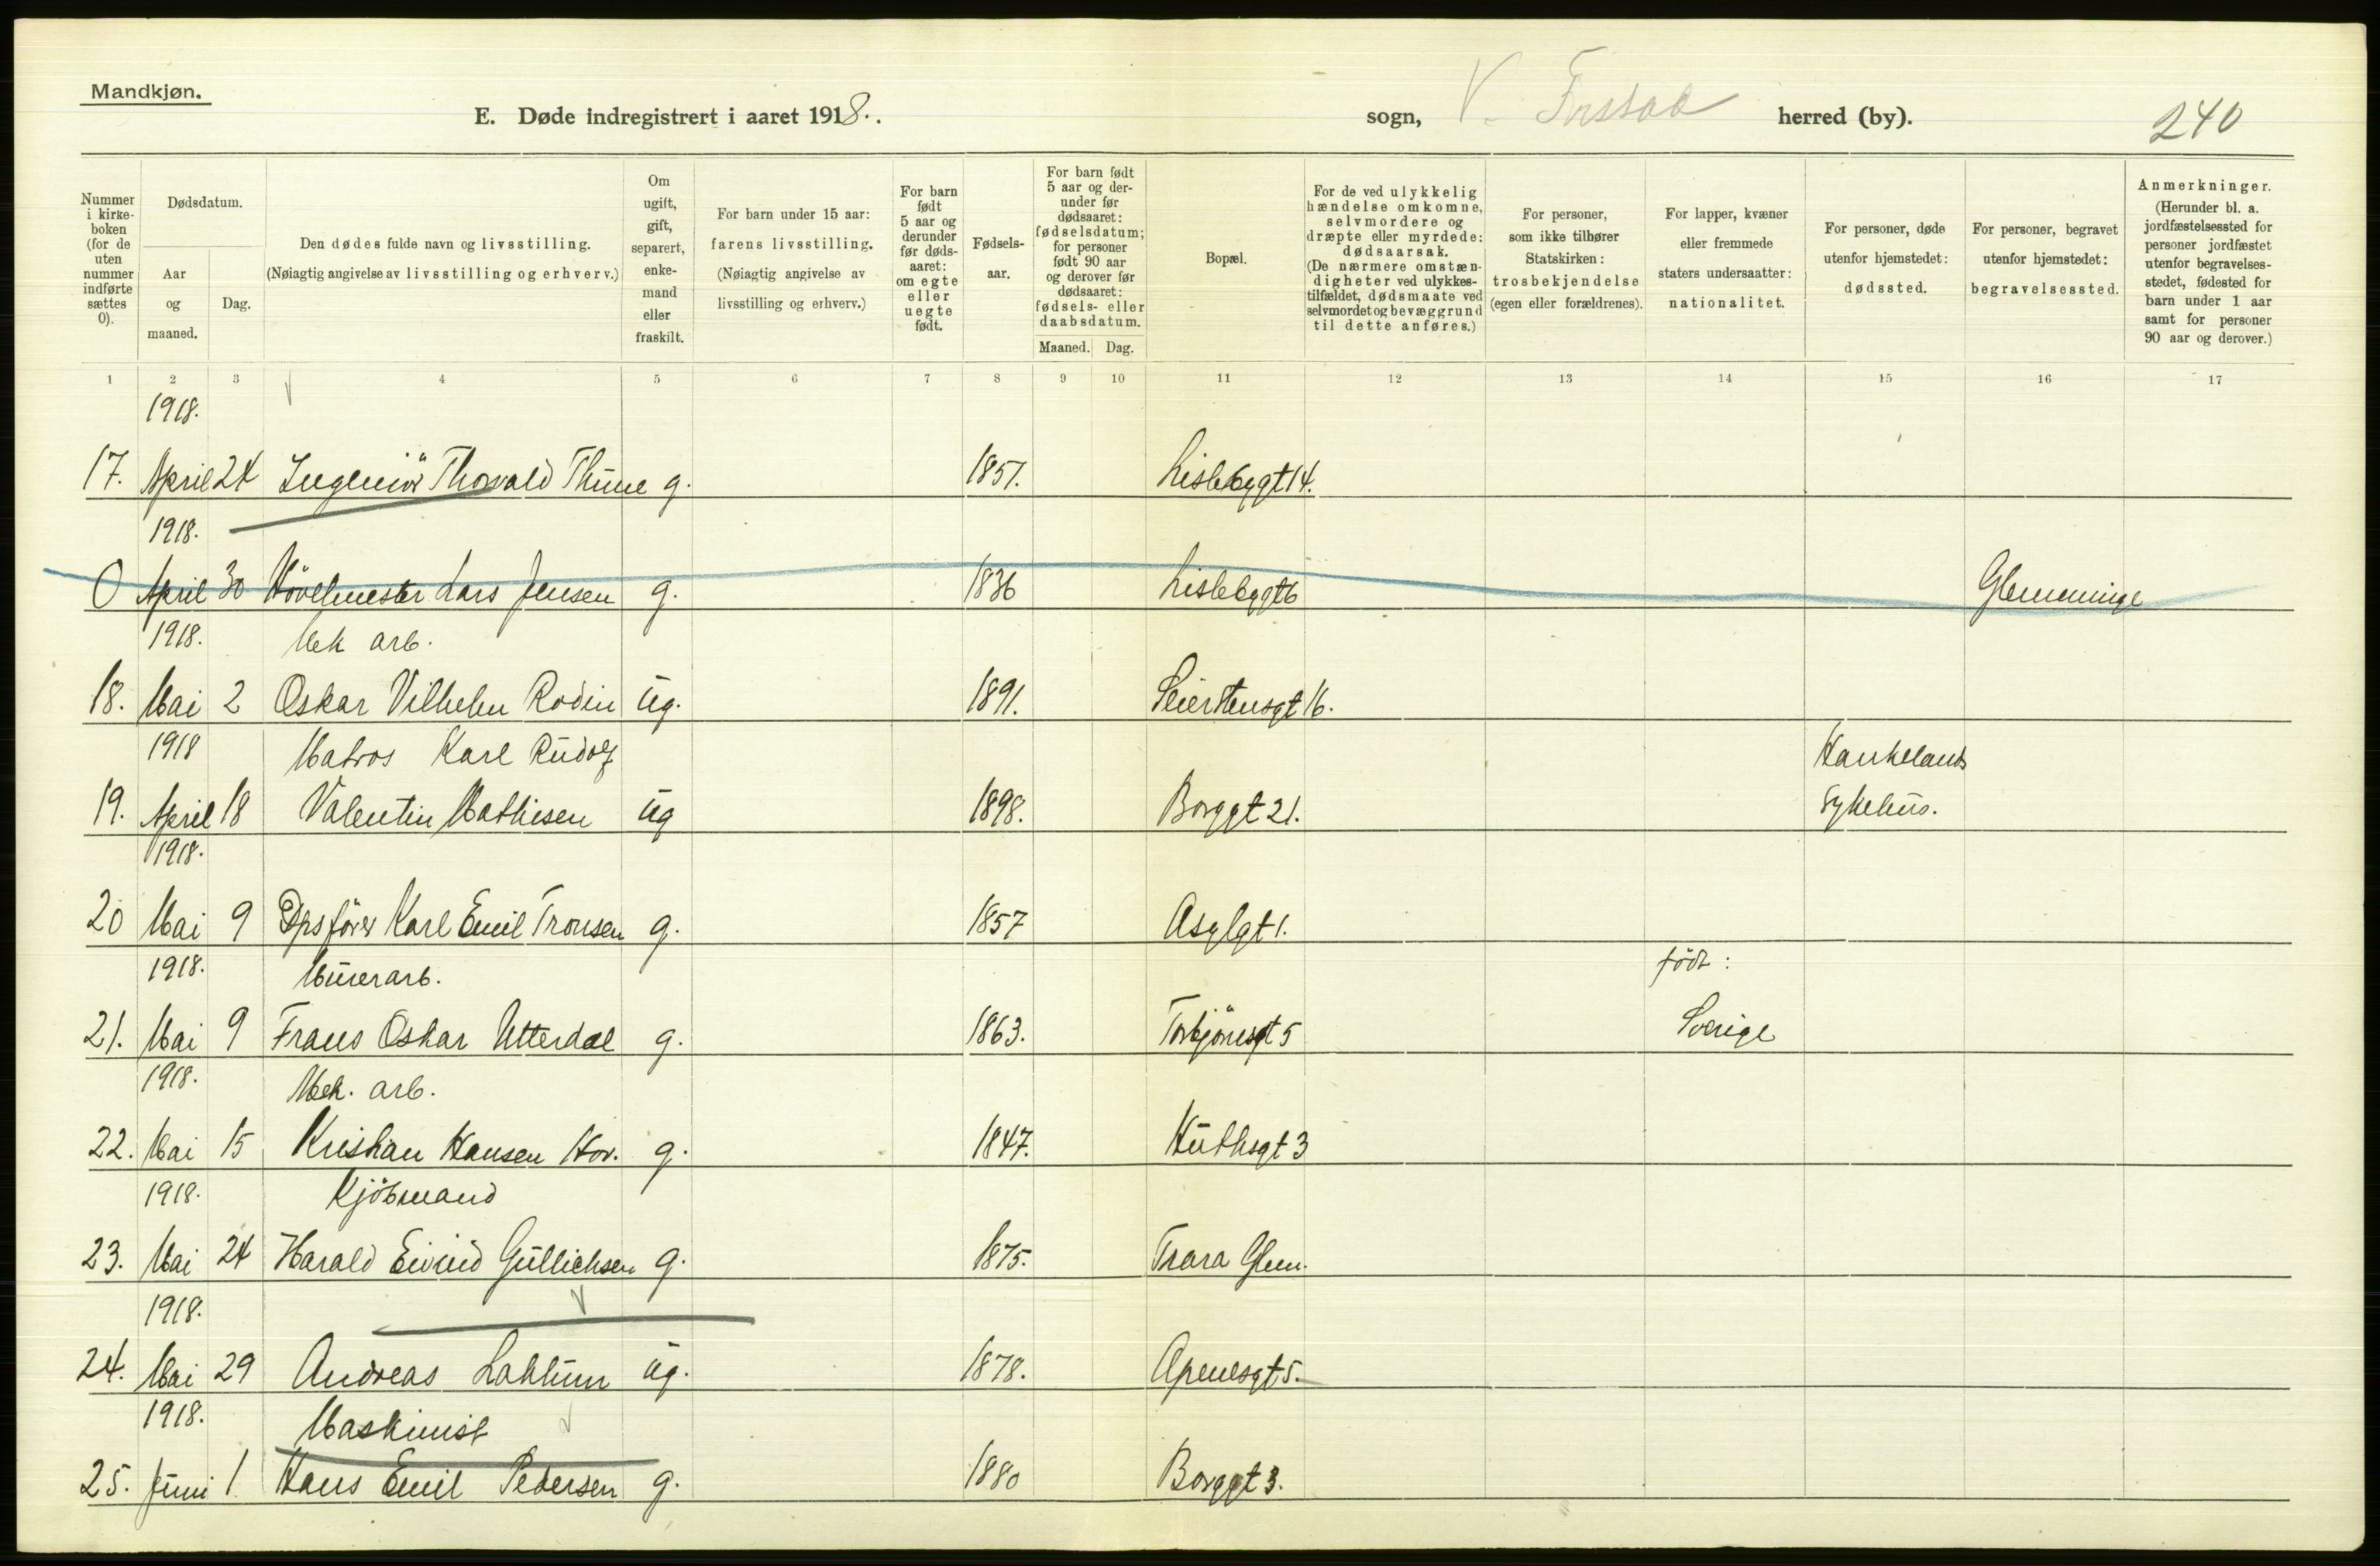 Mandkjøn.
E. Døde indregistrert i aaret 1918.
sogn, V. herred (by).
240
Nummer i kirke-boken (for de uten nummer indførte sættes 0).
Dødsdatum.
Aar og maaned.
Dag.
Den dødes fulde navn og livsstilling.
(Nøiagtig angivelse av livsstilling og erhverv.)
Om ugift, gift, separert, enke-mand eller fraskilt.
For barn under 15 aar: farens livsstilling.
(Nøiagtig angivelse av livsstilling og erhverv.)
For barn født 5 aar og derunder før døds-aaret: om egte eller uegte født.
Fødsels-aar.
For barn født 5 aar og der-under før dødsaaret: fødselsdatum; for personer født 90 aar og derover før dødsaaret: fødsels- eller daabsdatum.
Maaned. Dag.
Bopæl.
For de ved ulykkelig hændelse omkomne, selvmordere og dræpte eller myrdede: dødsaarsak.
(De nærmere omstæn-digheter ved ulykkes-tilfældet, dødsmaate ved selvmordet og bevæggrund til dette anføres.)
For personer, som ikke tilhører Statskirken: trosbekjendelse (egen eller forældrenes).
For lapper, kvæner eller fremmede staters undersaatter: nationalitet.
For personer, døde utenfor hjemstedet: dødssted.
For personer, begravet utenfor hjemstedet: begravelsessted.
Anmerkninger.
(Herunder bl. a. jordfæstelsessted for personer jordfæstet utenfor begravelses-stedet, fødested for barn under 1 aar samt for personer 90 aar og derover.)
1 2 3 4 5 6 7 8 9 10 11 12 13 14 15 16 17
1918.
17. April 24 Ingeniör Thorvald Thüne g. 1851. Lislebygt 14.
1918.
0 April 30 Hövelmester Lars Jensen g. 1836 Lislebygt 6 Glemminge
1918. Mek arb.
18. Mai 2 Oskar Vilhelm Rodin üg. 1891. Seierstensgt 16.
1918 Matros Karl Rüdolf Haukelands
19. April 18 Valentin Mathisen üg 1898. Borggt 21. Sykehüs.
1918.
20 Mai 9 Dpsförer Karl Emil Tronsen g. 1857 Asylgt 1.
1918. Mürerarb. født:
21. Mai 9 Frans Oskar Utterdal g. 1863. Torbjörnsgt 5 Sverige
1918. Mek. arb.
22. Mai 15 Kristian Hansen Hov. g. 1847. Hüthsgt 3
1918. Kjöbmand
23. Mai 24 Harald Eivind Güllichsen g. 1875. Trara Glem.
1918.
24. Mai 29 Andreas Laklüm üg. 1878. Apenesgt 5.
1918. Maskinist
25. Jüni 1 Hans Emil Pedersen g. 1880 Borggt 3.